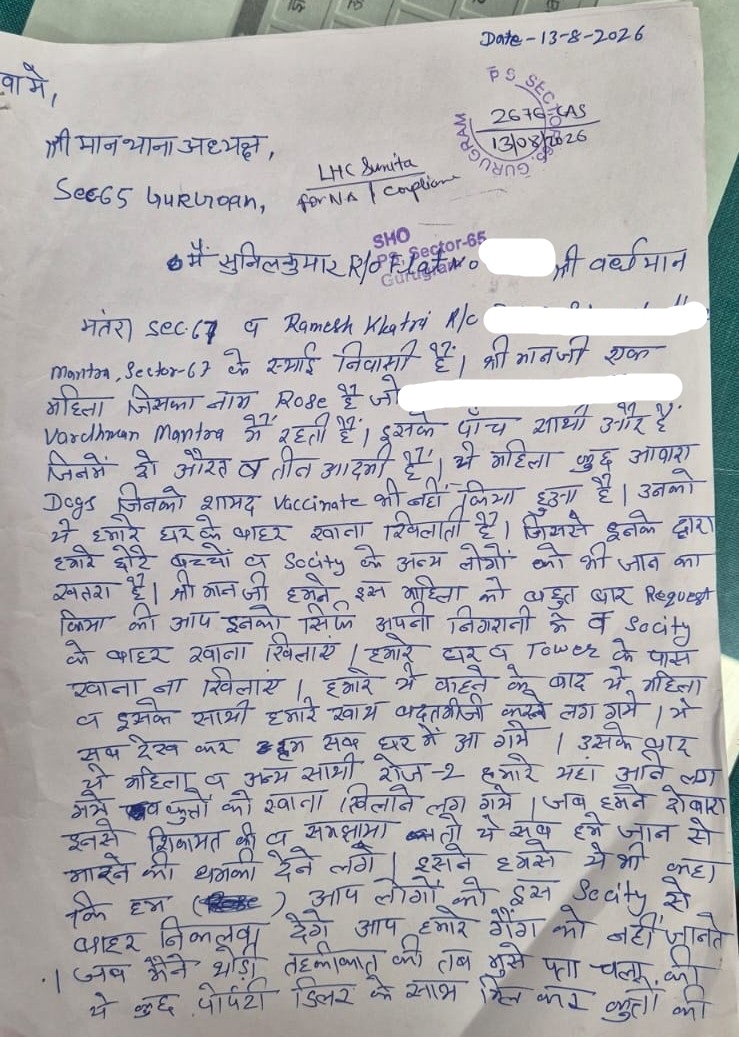 Date-13-8-2026
वा मे,
PS SECTOR-65 GURUGRAM
2676-CAS
13/08/2026
श्री मान थाना अध्यक्ष,
LHC Sunita
Sec-65 Gurugoan,
for NA / Compliance
SHO
PS Sector-65
Gurugram
मैं सुनिल कुमार R/o Flat No श्री वर्धमान
मंतरा Sec.67 व Ramesh Khatri R/o
Mantra, Sector-67 के स्थाई निवासी हैं। श्री मान जी एक
महिला जिसका नाम Rose है जो
Vardhman Mantra में रहती हैं। इसके पाँच साथी और हैं
जिनमें दो औरत व तीन आदमी हैं। ये महिला कुछ आवारा
Dogs जिनको शायद Vaccinate भी नहीं किया हुआ है। उनको
ये हमारे घर के बाहर खाना खिलाती है। जिससे इनके द्वारा
हमारे छोटे बच्चों व Socity के अन्य लोगों को भी जान का
खतरा है। श्री मान जी हमने इस महिला को बहुत बार Request
किया की आप इनको सिर्फ अपनी निगरानी मे व Socity
के बाहर खाना खिलाएं। हमारे घर व Tower के पास
खाना ना खिलाएं। हमारे ये कहने के बाद ये महिला
व इसके साथी हमारे साथ बदतमीजी करने लग गये। ये
सब देख कर हम सब घर में आ गये। उसके बाद
ये महिला व अन्य साथी रोज-2 हमारे यहां आने लग
गये व कुत्तों को खाना खिलाने लग गये। जब हमने दोबारा
इनसे शिकायत की व समझाया तो ये सब हमे जान से
मारने की धमकी देने लगे। इसने हमसे ये भी कहा
कि हम ( ) आप लोगों को इस Socity से
बाहर निकलवा देंगे आप हमारे गैंग को नहीं जानते
। जब मैने थोड़ी तहकीकात की तब मुझे पता चला की
ये कुछ प्रोपर्टी डिलर के साथ मिल कर कुत्तों की